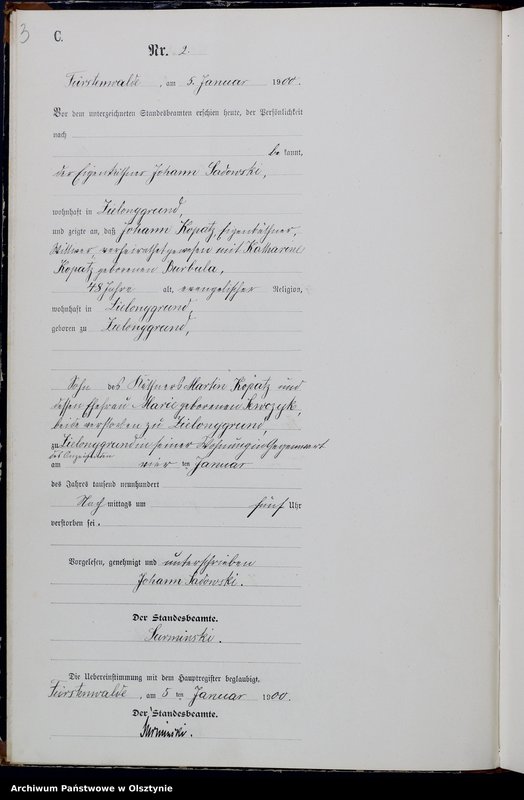 3
C.
Nr. 2.
Fürstenwalde, am 5. Januar 1900.
Vor dem unterzeichneten Standesbeamten erschien heute, der Persönlichkeit
nach
be kannt,
der Eigenkäthner Johann Sadowski,
wohnhaft in Zielonygrund,
und zeigte an, daß Johann Kopatz, Eigenkäthner,
Wittwer, verheirathet gewesen mit Katharine
Kopatz geborenen Burbula,
48 Jahre alt, evangelischer Religion,
wohnhaft in Zielonygrund,
geboren zu Zielonygrund,
Sohn des Käthners Martin Kopatz und
dessen Ehefrau Marie geborenen
beide verstorben zu Zielonygrund,
zu Zielonygrund in seiner Wohnung in Gegenwart
des Anzeigenden
am vier ten Januar
des Jahres tausend neunhundert
Nach mittags um fünf Uhr
verstorben sei.
Vorgelesen, genehmigt und unterschrieben
Johann Sadowski.
Der Standesbeamte.
Surminski.
Die Uebereinstimmung mit dem Hauptregister beglaubigt.
Fürstenwalde, am 5 ten Januar 1900.
Der Standesbeamte.
Surminski.
Archiwum Państwowe w Olsztynie